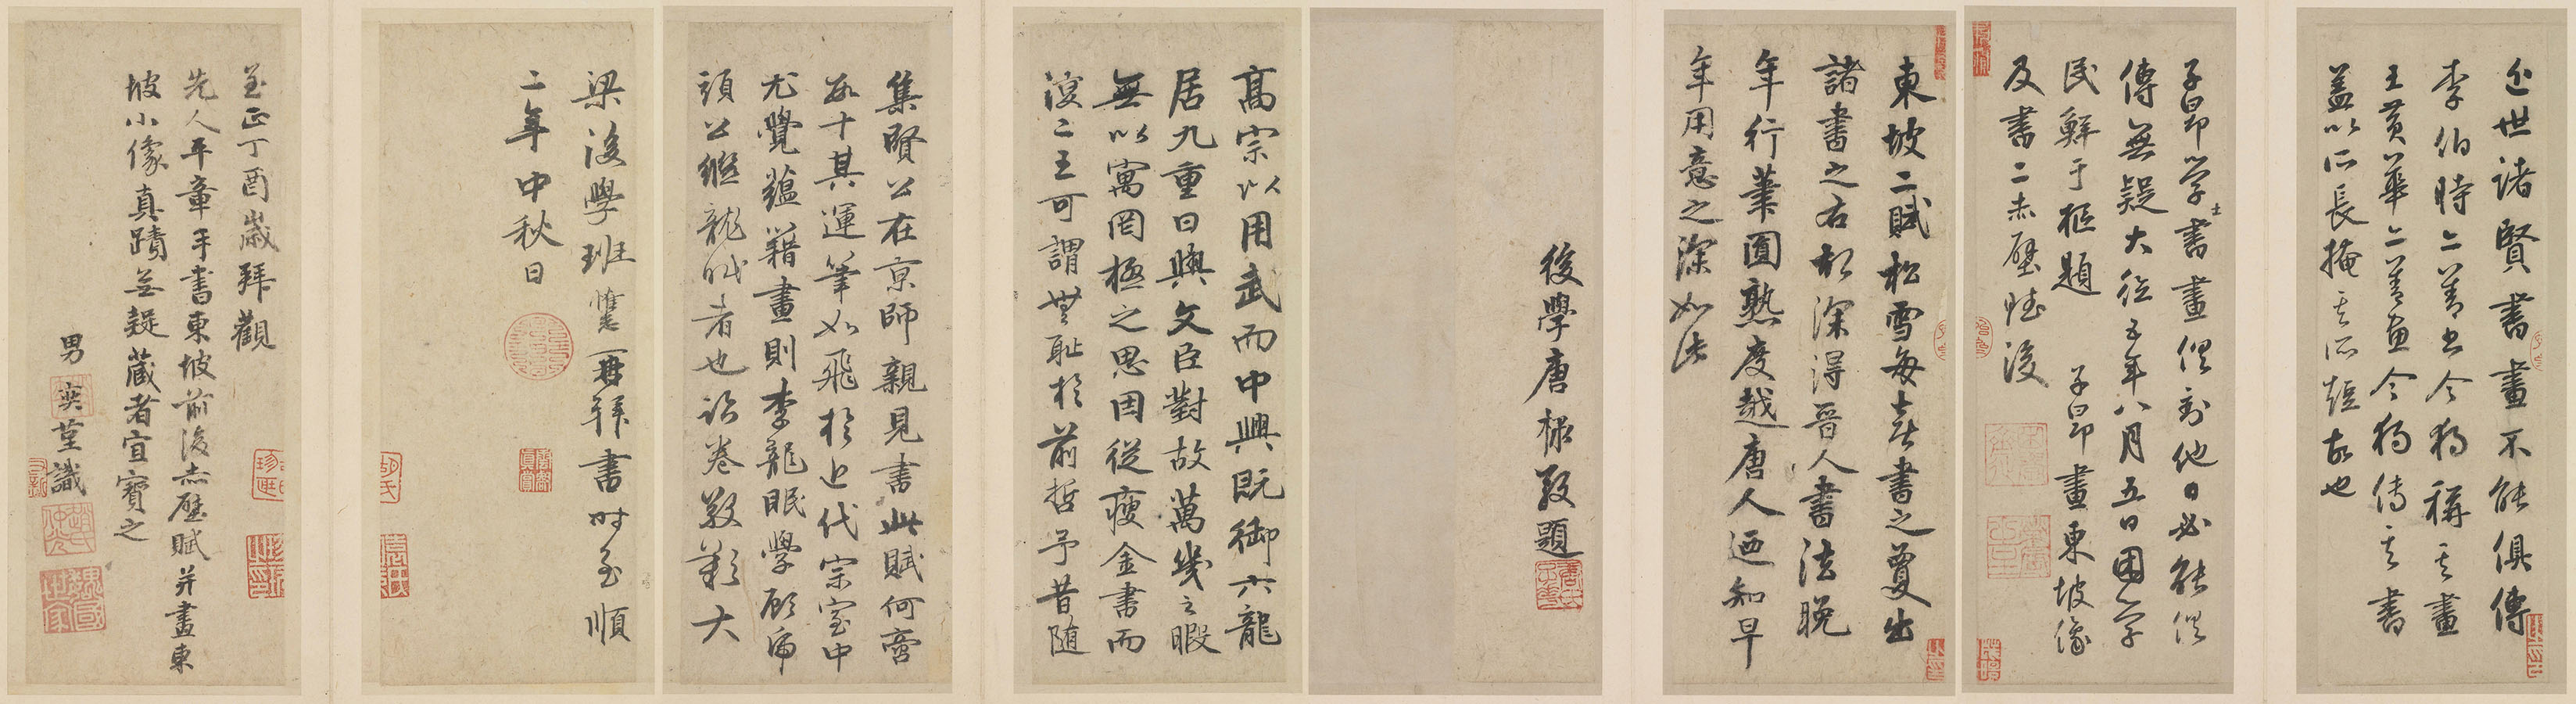 近世諸賢書畫不能俱傳
李伯時亦善書今獨稱其畫
王黃華亦善畫今獨傳其書
蓋以所長掩其所短故也
子昂學士書畫俱到他日必能俱
傳無疑大德五年八月五日困學
民鮮于樞題 子昂畫東坡像
及書二赤壁賦後
東坡二賦松雪每喜書之敻出
諸書之右都深得晉人書法晚
年行筆圓熟度越唐人迺知早
年用意之深如此
後學唐棣敬題
高宗以用武而中興既御六龍
居九重日與文臣對故萬幾之暇
無以寓罔極之思因從瘦金書而
復二王可謂無恥於前哲予昔随
集賢公在京師親見書此賦何啻
數十其運筆如飛於近代宗室中
尤覺蘊藉畫則李龍眠學顧虎
頭公繼龍眠者也卷敬歎大
梁後學班惟志再拜書時至順
二年中秋日
至正丁酉歲拜觀
先人平章手書東坡前後赤壁賦并畫東
坡小像真蹟無疑藏者宜寶之
男奕謹識